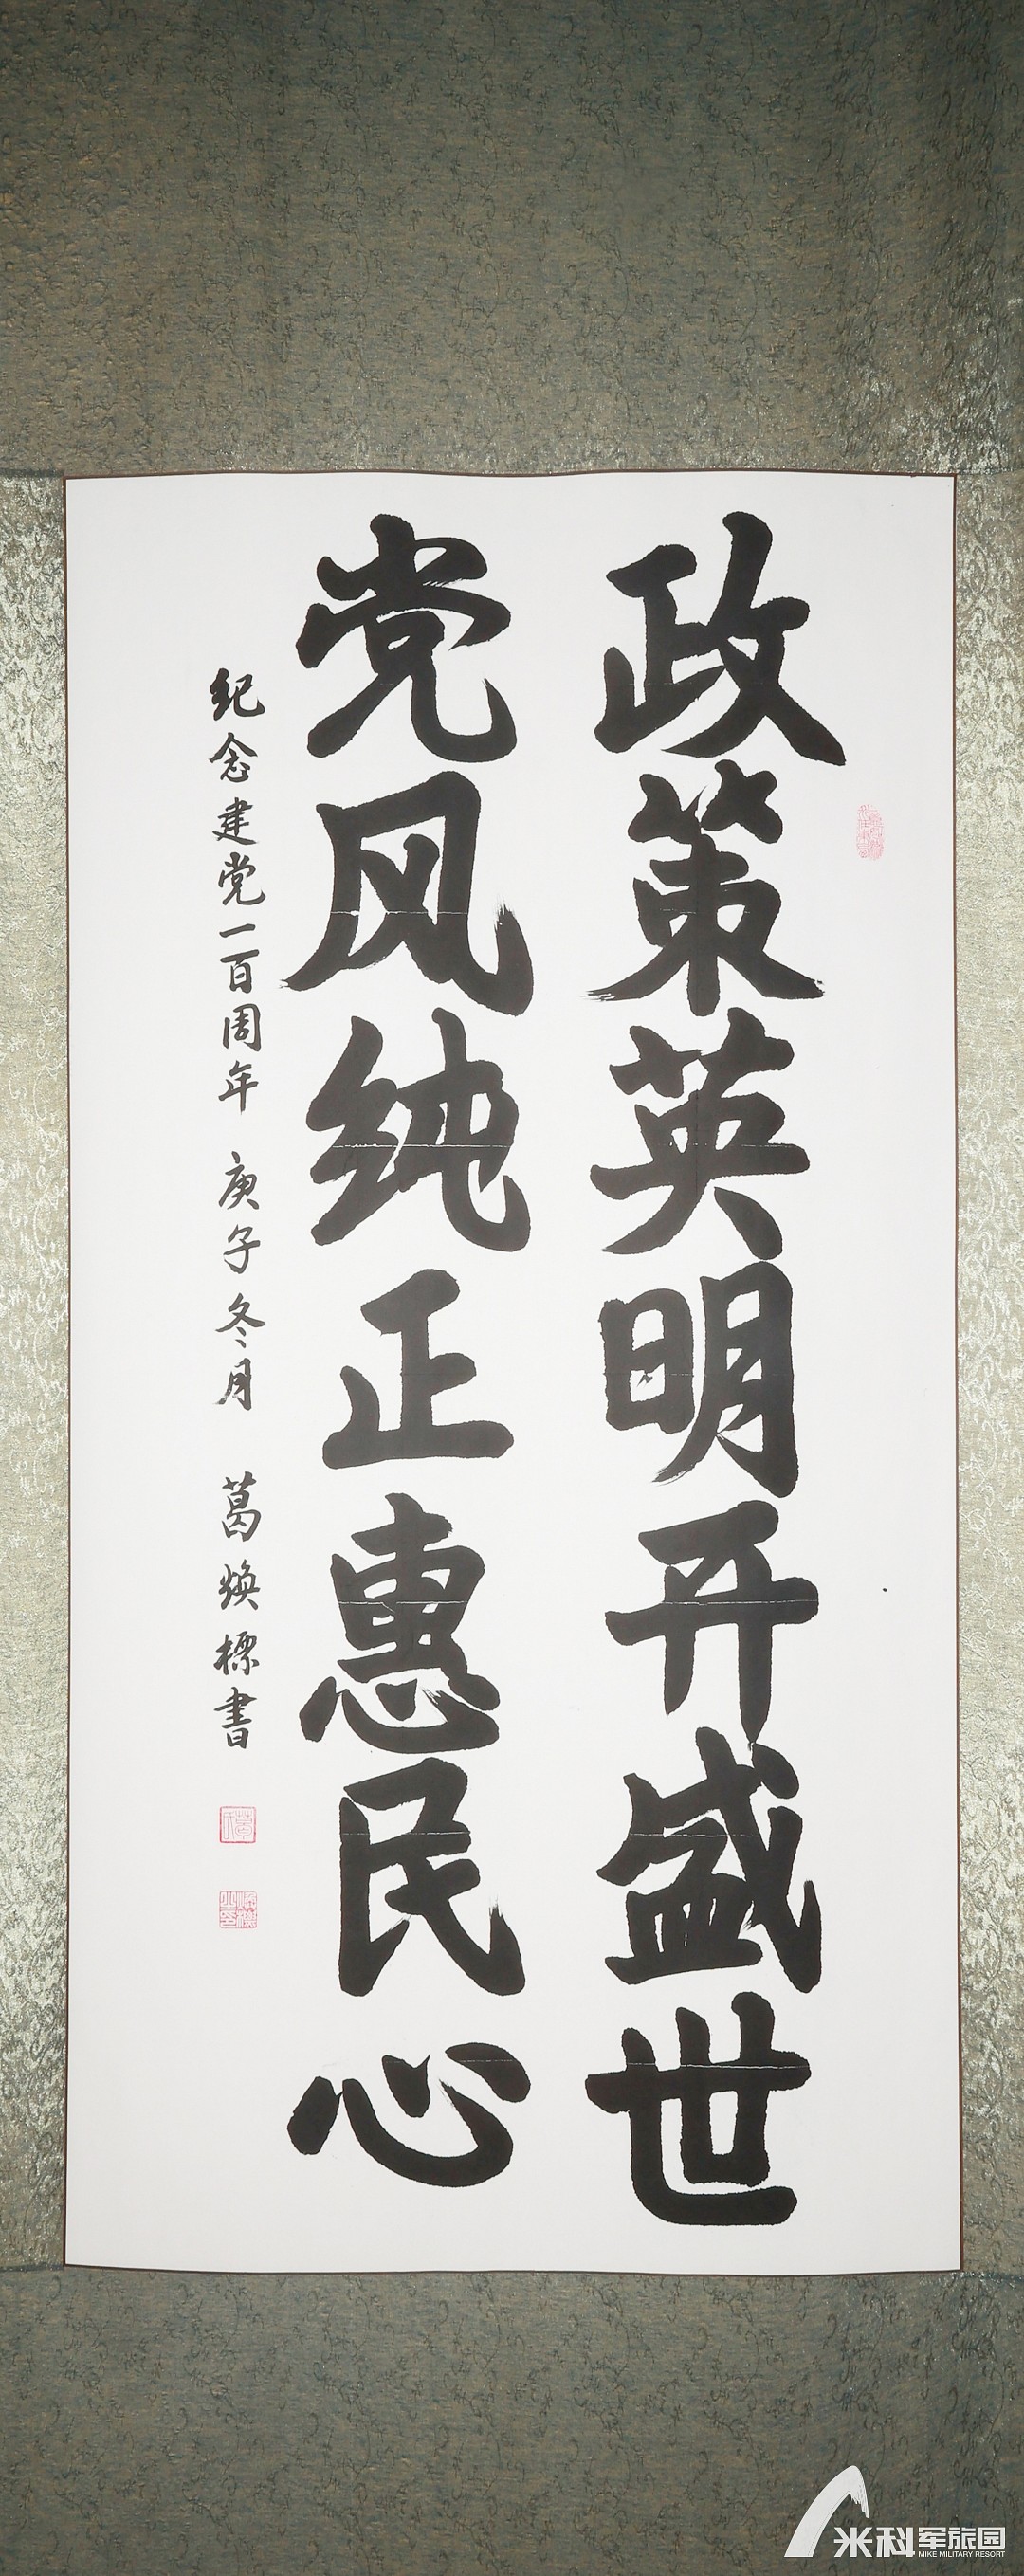 政策英明开盛世
党风纯正惠民心
纪念建党一百周年 庚子冬月 葛焕标书
米科军旅园
MIKE MILITARY RESORT